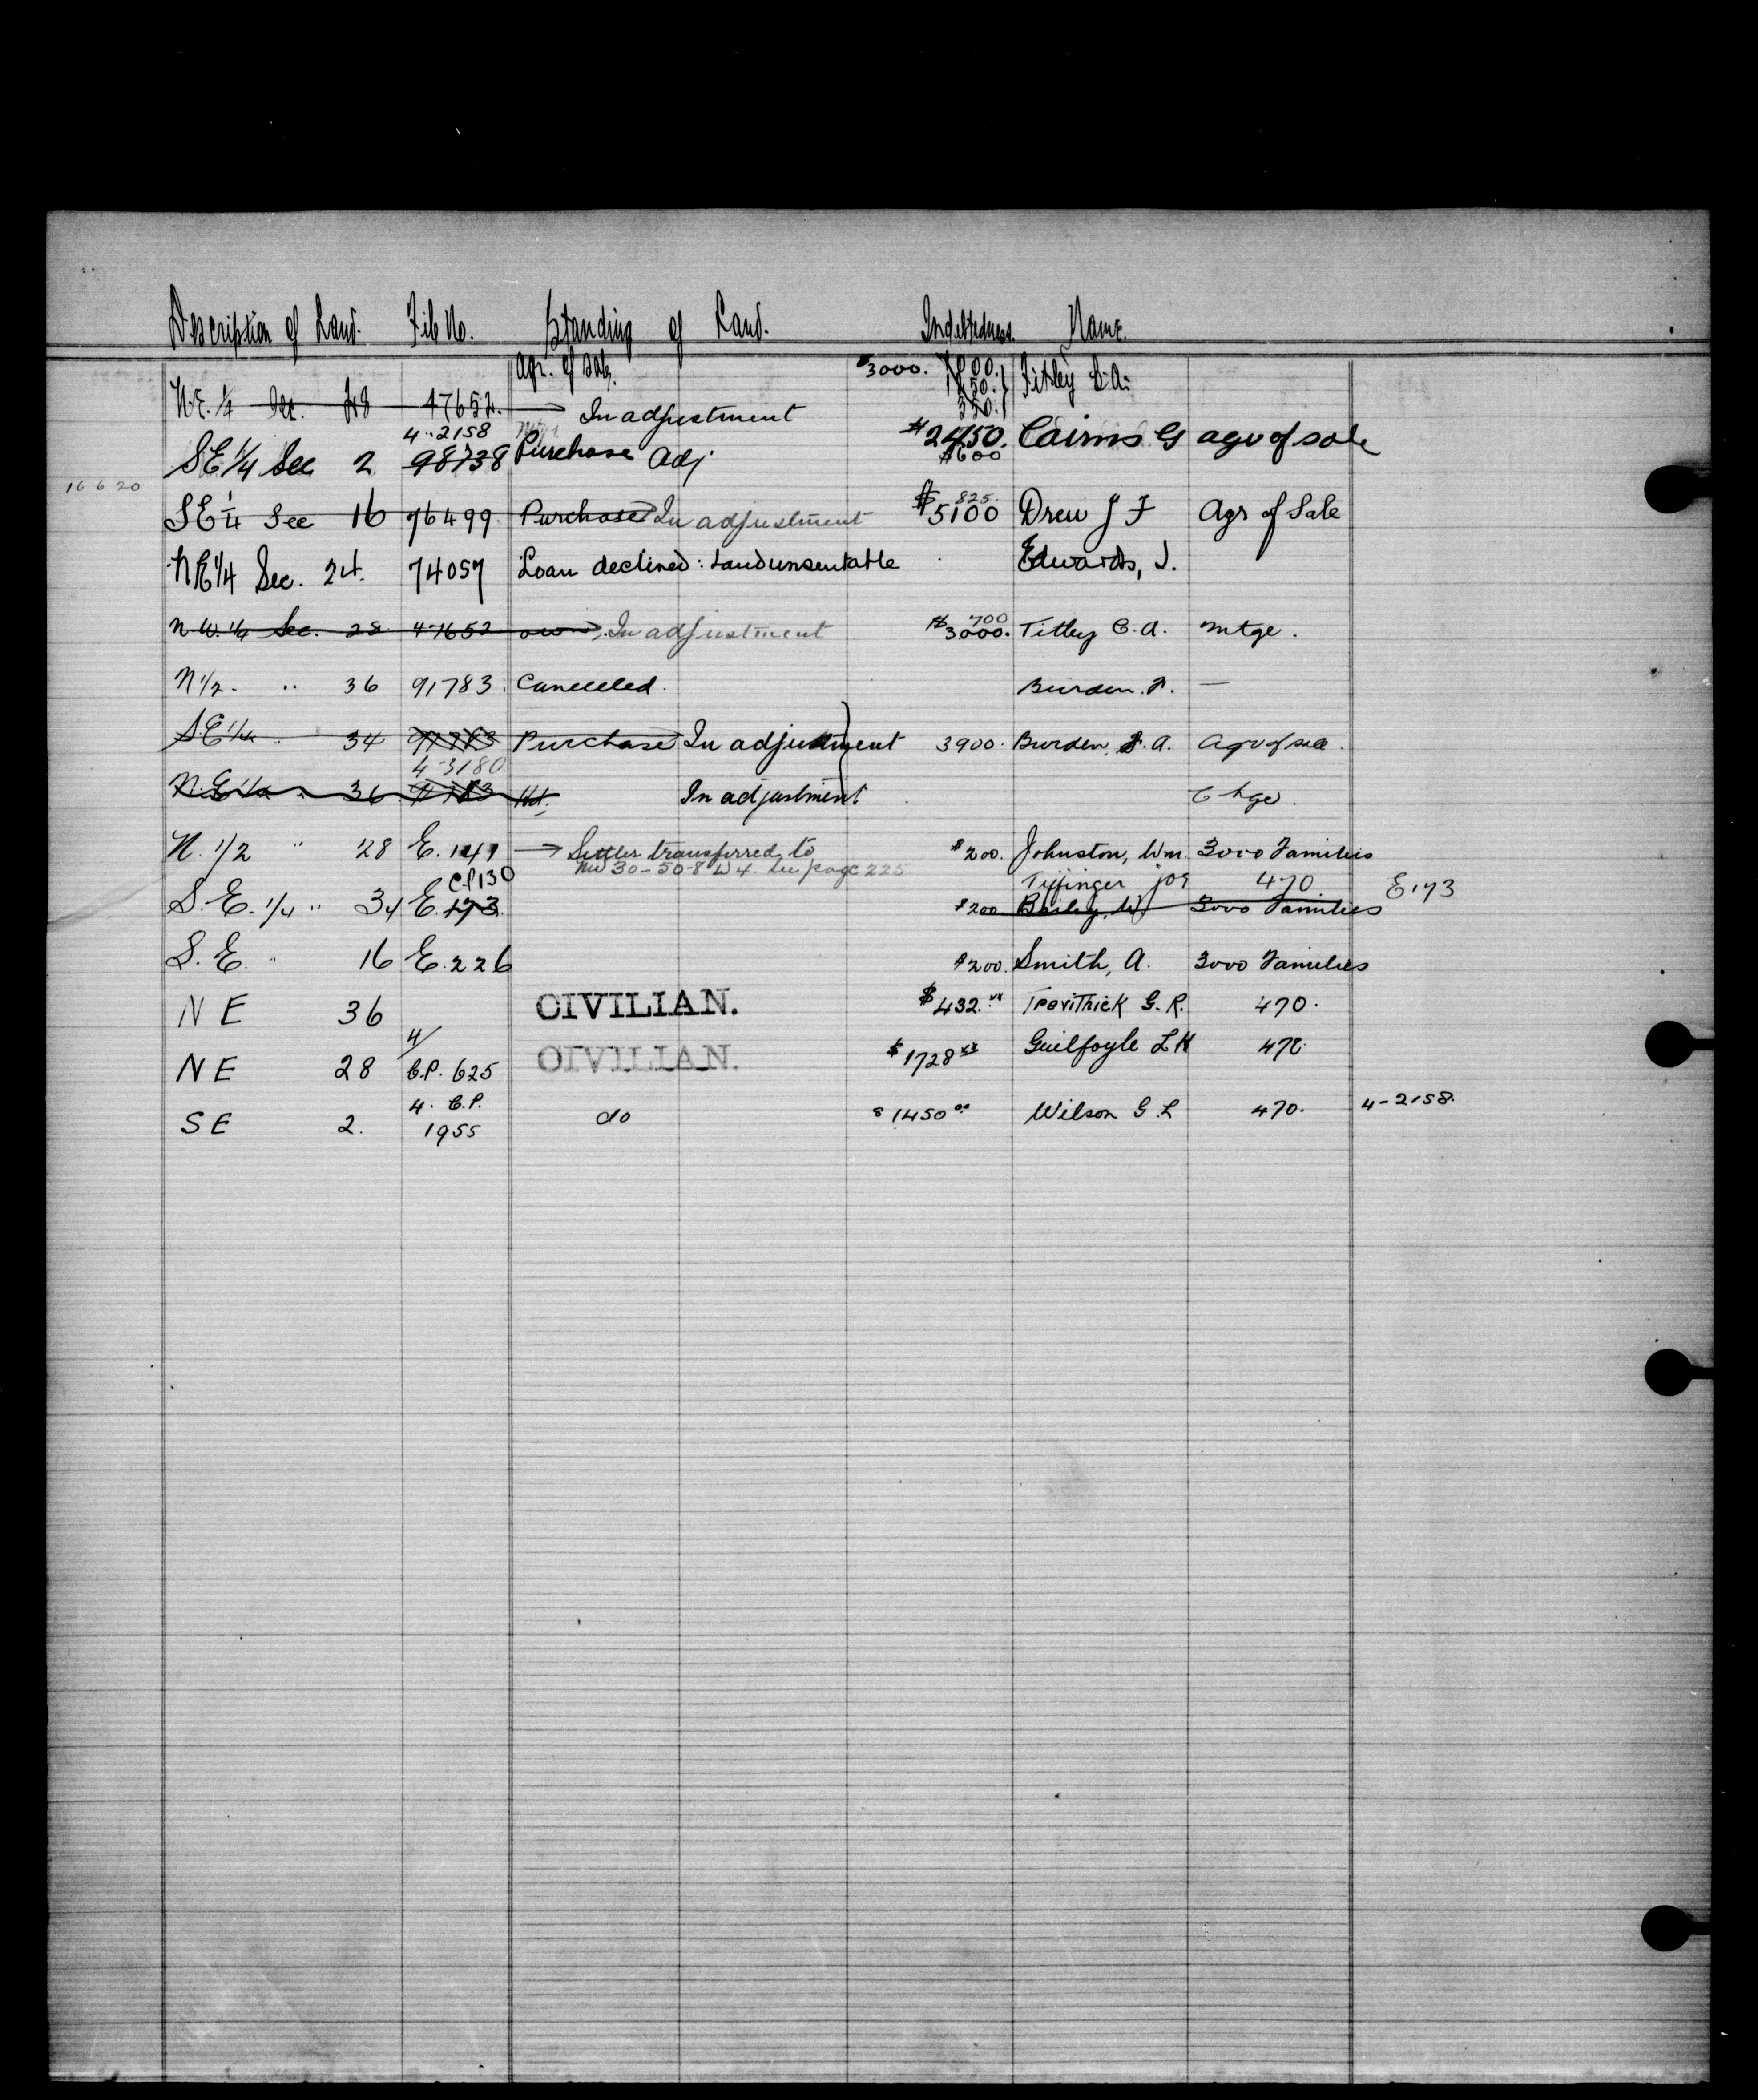 Description of Land. File No. Standing of Land. Indebtedness. Name.
Agr. of Sale. $3000. Titley C.A.
N.E. 1/4 Sec. 28 47652. In adjustment
4-2158
SE 1/4 Sec 2 98738 Purchase Adj $2450. Cairns G agr of sale
$600
16 6 20
SE 1/4 Sec 16 76499 Purchase In adjustment $5100 825. Drew J F Agr of Sale
NE 1/4 Sec. 24. 74057 Loan declined: Land unsuitable Edwards, J.
N.W. 1/4 Sec. 28 47652 own, In adjustment $3000. 700 Titley C.A. mtge.
N 1/2. " 36 91783. Cancelled. Burden. F. —
S.E 1/4 " 34 91783 Purchase In adjustment 3900. Burden, F. A. Agr of sale.
4-3180
N.E 1/4 " 36 91783 In adjustment Chge.
N. 1/2 " 28 E. 141 Settler transferred to $200. Johnston, Wm. 3000 Families
NW 30-50-8 W 4. See page 225
CP130 Tiffinger Jos 470. E173
S.E. 1/4 " 34 E. 173. $200 Bailey, W 3000 Families
S.E. " 16 E. 226 $200. Smith, A. 3000 Families
NE 36 CIVILIAN. $432.xx Trevithick G. R. 470.
4/
NE 28 C.P. 625 CIVILIAN. $1728xx Guilfoyle L H 470.
4. C.P.
SE 2. 1955 do $1450.00 Wilson G. L 470. 4-2158.